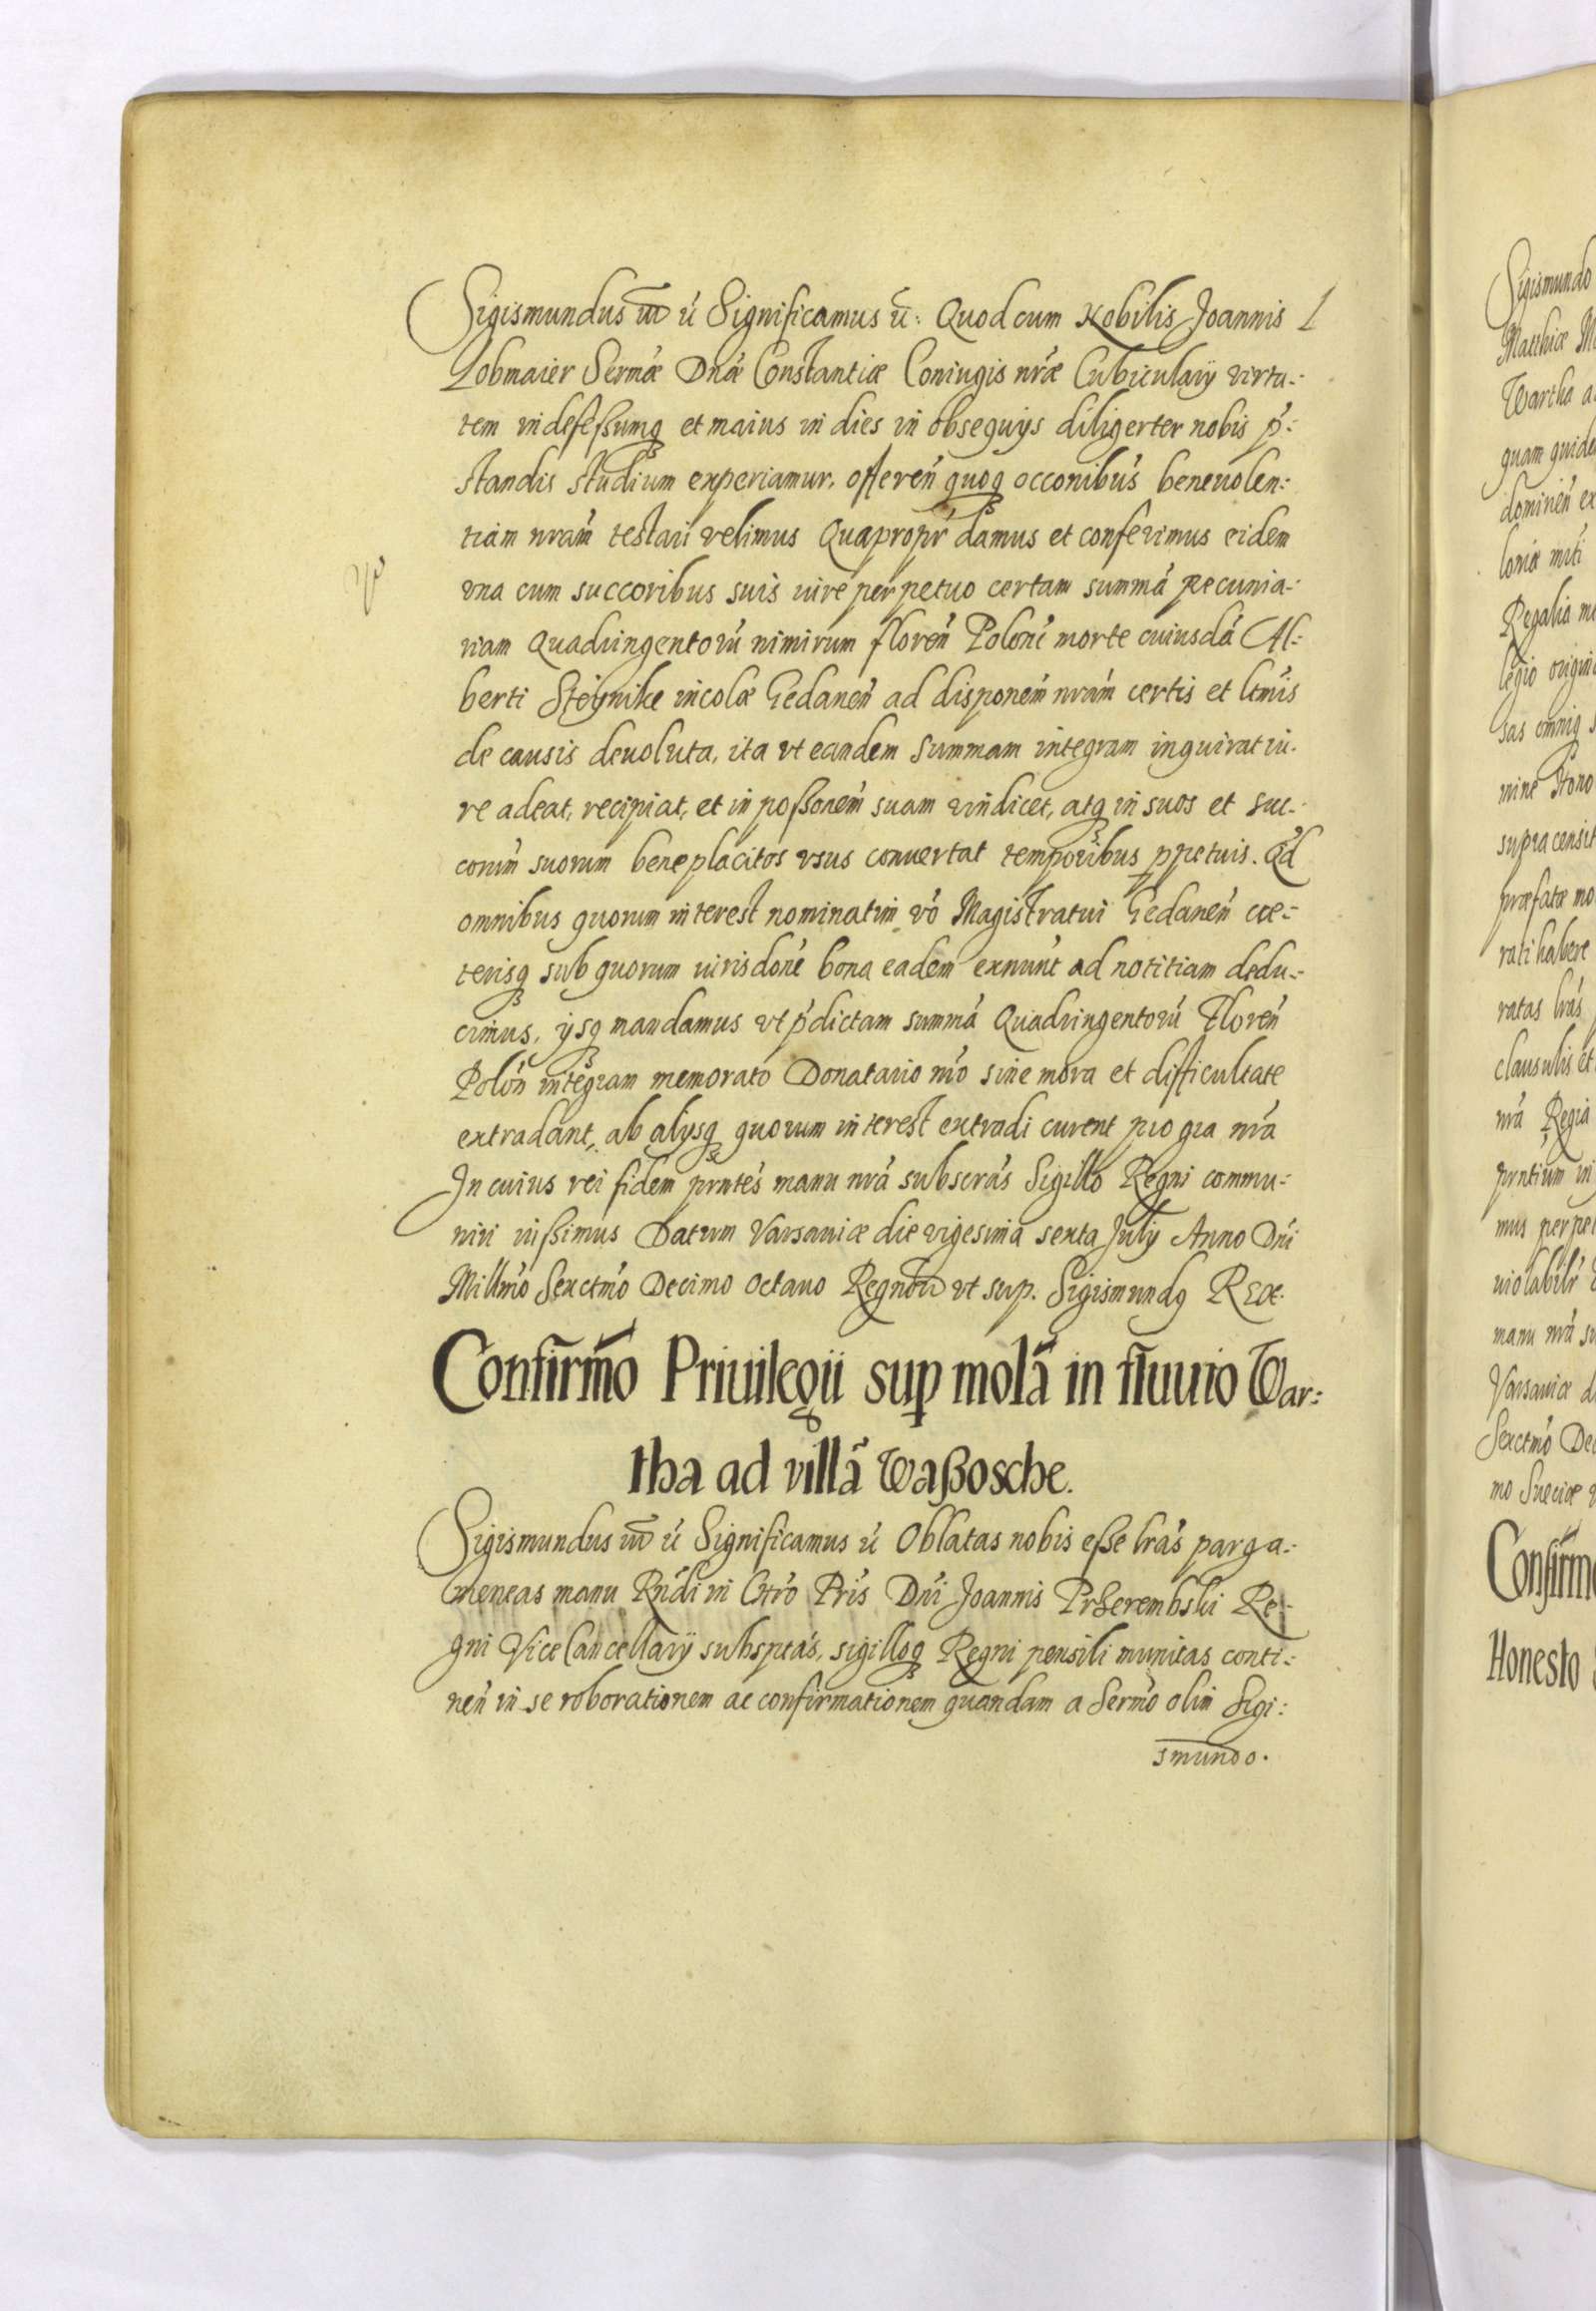 Sigismundus III ű Significamus ű: Quod cum Nobilis Joannis L
Lobmaier Sermæ Dnæ Constantiæ Coniugis nræ Cubicularij virtu-:
tem indefeßumq et maius in dies in obsequijs diligerter nobis p-:
standis studium experiamur, offeren quoq occonibus beneuolen:
tiam nram testari velimus Quapropr damus et conferimus eidem
vna cum succoribus suis iure perpetuo certam summā pecunia-:
riam Quadringentorū nimirum floren Poloni morte cuiusdā Al-:
berti Steynike incolæ Gedanen ad disponem nram certis et ltmis
de causis deuoluta, ita vt eandem Summam integram inquirat iu-
re adeat, recipiat, et in poßonem suam vindicet, atq in suos et suc-:
corum suorum beneplacitos vsus conuertat temporibus ppetuis. Qd
omnibus quorum interest nominatim vo Magistratui Gedanen cæ-:
terisq sub quorum iurisdone bona eadem exnunt ad notitiam dedu-:
cimus, ijsq mandamus vt pdictam summā Quadringentorū Floren
Polon integram memorato Donatario nro sine mora et difficultate
extradant, ab alijsq quorum interest extradi curent pro gra nra
In cuius rei fidem prntes manu nra subscras Sigillo Regni commu-:
niri iußimus Datum Varsauiæ die vigesima sexta Julij Anno Dni
Millmo Sexctmo Decimo Octauo Regnorū vt sup. Sigismundq Rex.
Confirmo Priuilegii sup molā in fluuio War:
tha ad villā Waßosche.
Sigismundus III ű Significamus ű Oblatas nobis eße lras parga-:
meneas manu Rndi in Chro Pris Dni Joannis Przerembski Re-:
gni Vice Cancellarij subsptas, sigilloq Regni pensili munitas conti-:
nen in se roborationem ac confirmationem quandam a Sermo olim Sigi:
smundo.
Sigismundo
Matthiæ
Wartha
dominen
Regalia
supra censit
præfatæ
rati habere
ratas lras
clausulis et
nra Regia
prntium in
mus
manu nra
Varsauiæ
Sexctmo
mo Sueciæ
Confirm
Honesto